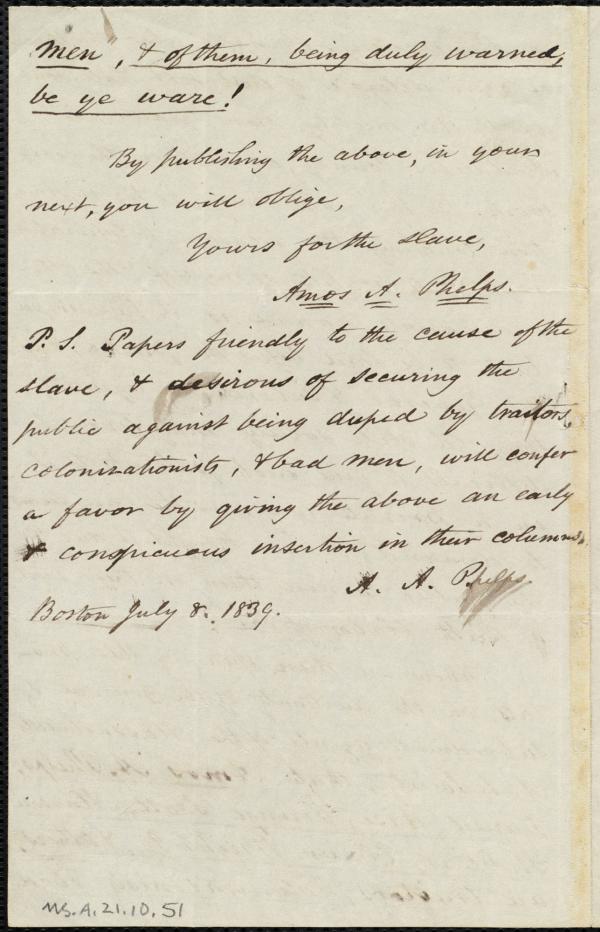 men, & of them, being duly warned,
be ye ware!
By publishing the above, in your
next, you will oblige,
Yours for the slave,
Amos A. Phelps.
P. S. Papers friendly to the cause of the
slave, & desirous of securing the
public against being duped by traitors,
colonizationists, & bad men, will confer
a favor by giving the above an early
& conspicuous insertion in their columns,
A. A. Phelps.
Boston July 8. 1839.
MS.A.21.10.51